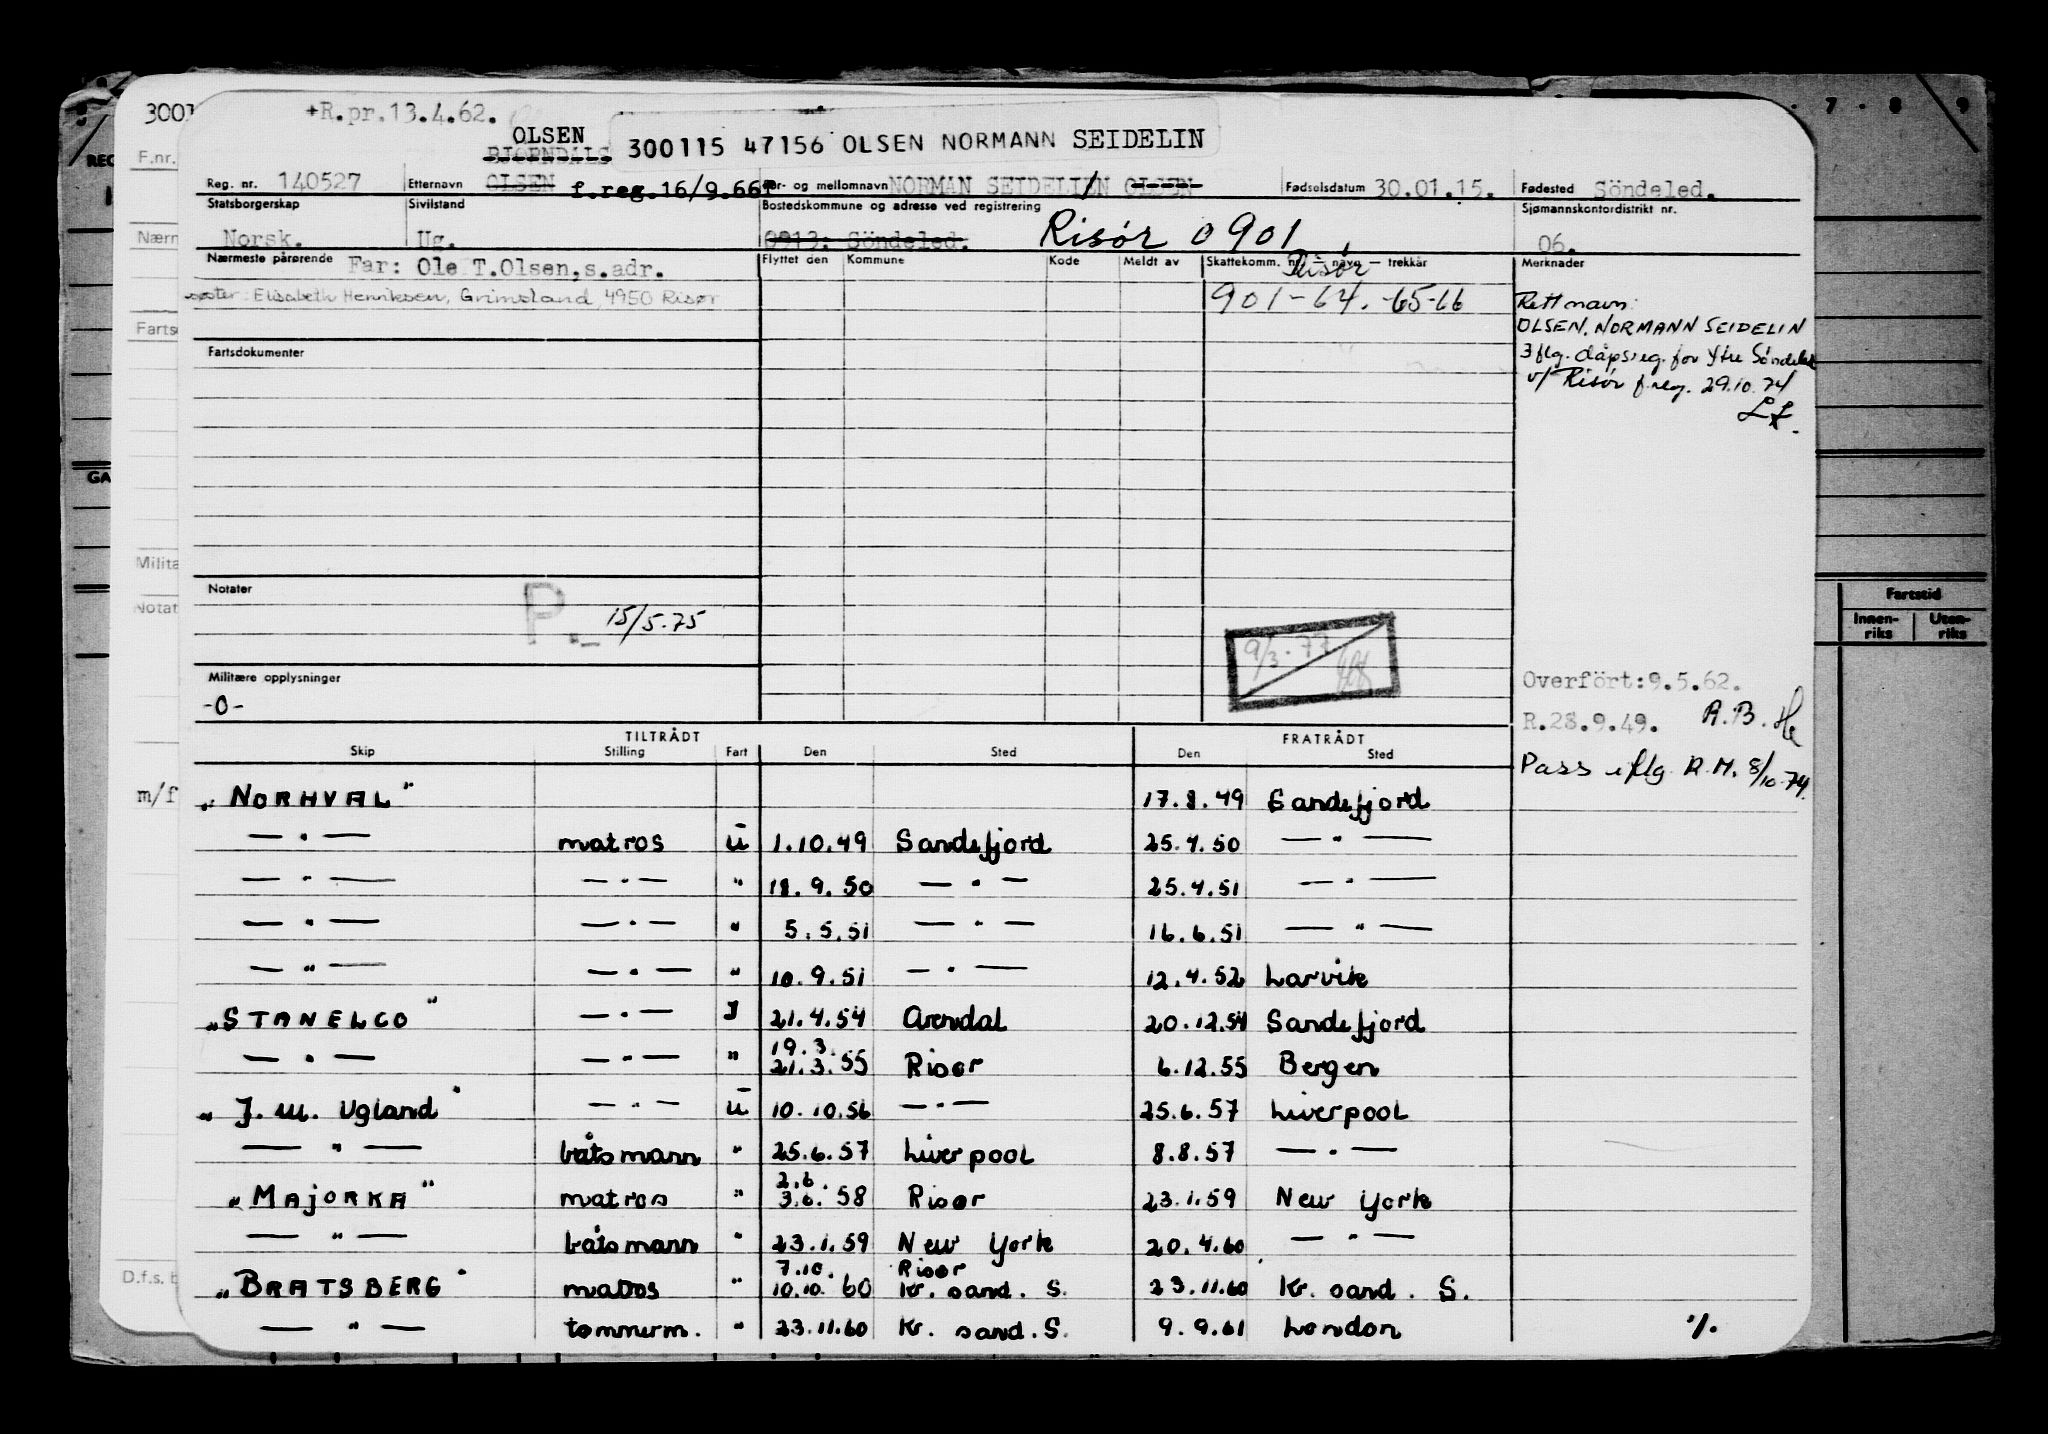 3001
+R.pr.13.4.62.
OLSEN
BJÖRNDALS
300115 47156 OLSEN NORMANN SEIDELIN
7 · 8 · 9
REG
F.nr.
Reg. nr. 140527 Etternavn OLSEN f.reg.16/9.66 For- og mellomnavn NORMAN SEIDELIEN OLSEN Fødselsdatum 30.01.15. Fødested Söndeled.
Statsborgerskap Sivilstand Bostedskommune og adresse ved registrering Sjømannskontordistrikt nr.
Nærm
Norsk. Ug. 0913: Söndeled. Risör 0901 06.
Nærmeste pårørende Far: Ole T.Olsen,s.adr. Flyttet den Kommune Kode Meldt av Skattekomm. nr. — navn — trekkår Merknader
Risör
søster: Elisabeth Henriksen, Grimsland, 4950 Risør 901-64.-65-66
Rett navn:
OLSEN, NORMANN SEIDELIN
Fartsdokumenter
Farts
iflg. dåpsreg. for Ytre Söndeled
v/ Risör f.reg. 29.10.74
GA
Milita
Notater
Notat
P. 15/5.75
Fartstid
Innen-
riks
Uten-
riks
9/3.77
Militære opplysninger
-0-
Overfört:9.5.62.
R.28.9.49. A.B. He
Pass iflg. A.M. 8/10.74.
TILTRÅDT FRATRÅDT
Skip Stilling Fart Den Sted Den Sted
m/f
"NORHVAL" 17.8.49 Sandefjord
— " — matros ū 1.10.49 Sandefjord 25.4.50 — " —
— " — — " — " 18.9.50 — " — 25.4.51 — " —
— " — — " — " 5.5.51 — " — 16.6.51 — " —
— " — — " — " 10.9.51 — " — 12.4.52 Larvik
"STANELCO" — " — I 21.4.54 Arendal 20.12.54 Sandefjord
19.3.
— " — — " — " 21.3.55 Risør 6.12.55 Bergen
"J. M. Ugland" — " — ū 10.10.56 — " — 25.6.57 Liverpool
— " — båtsmann " 25.6.57 Liverpool 8.8.57 — " —
2.6.
"MAJORKA" matros " 3.6.58 Risør 23.1.59 New York
— " — båtsmann " 23.1.59 New York 20.4.60 — " —
7.10. Risør
"BRATSBERG" matros " 10.10.60 Kr. sand. S. 23.11.60 Kr. sand. S.
D.f.s. b
— " — tømmerm. " 23.11.60 Kr. sand. S. 9.9.61 London ./.